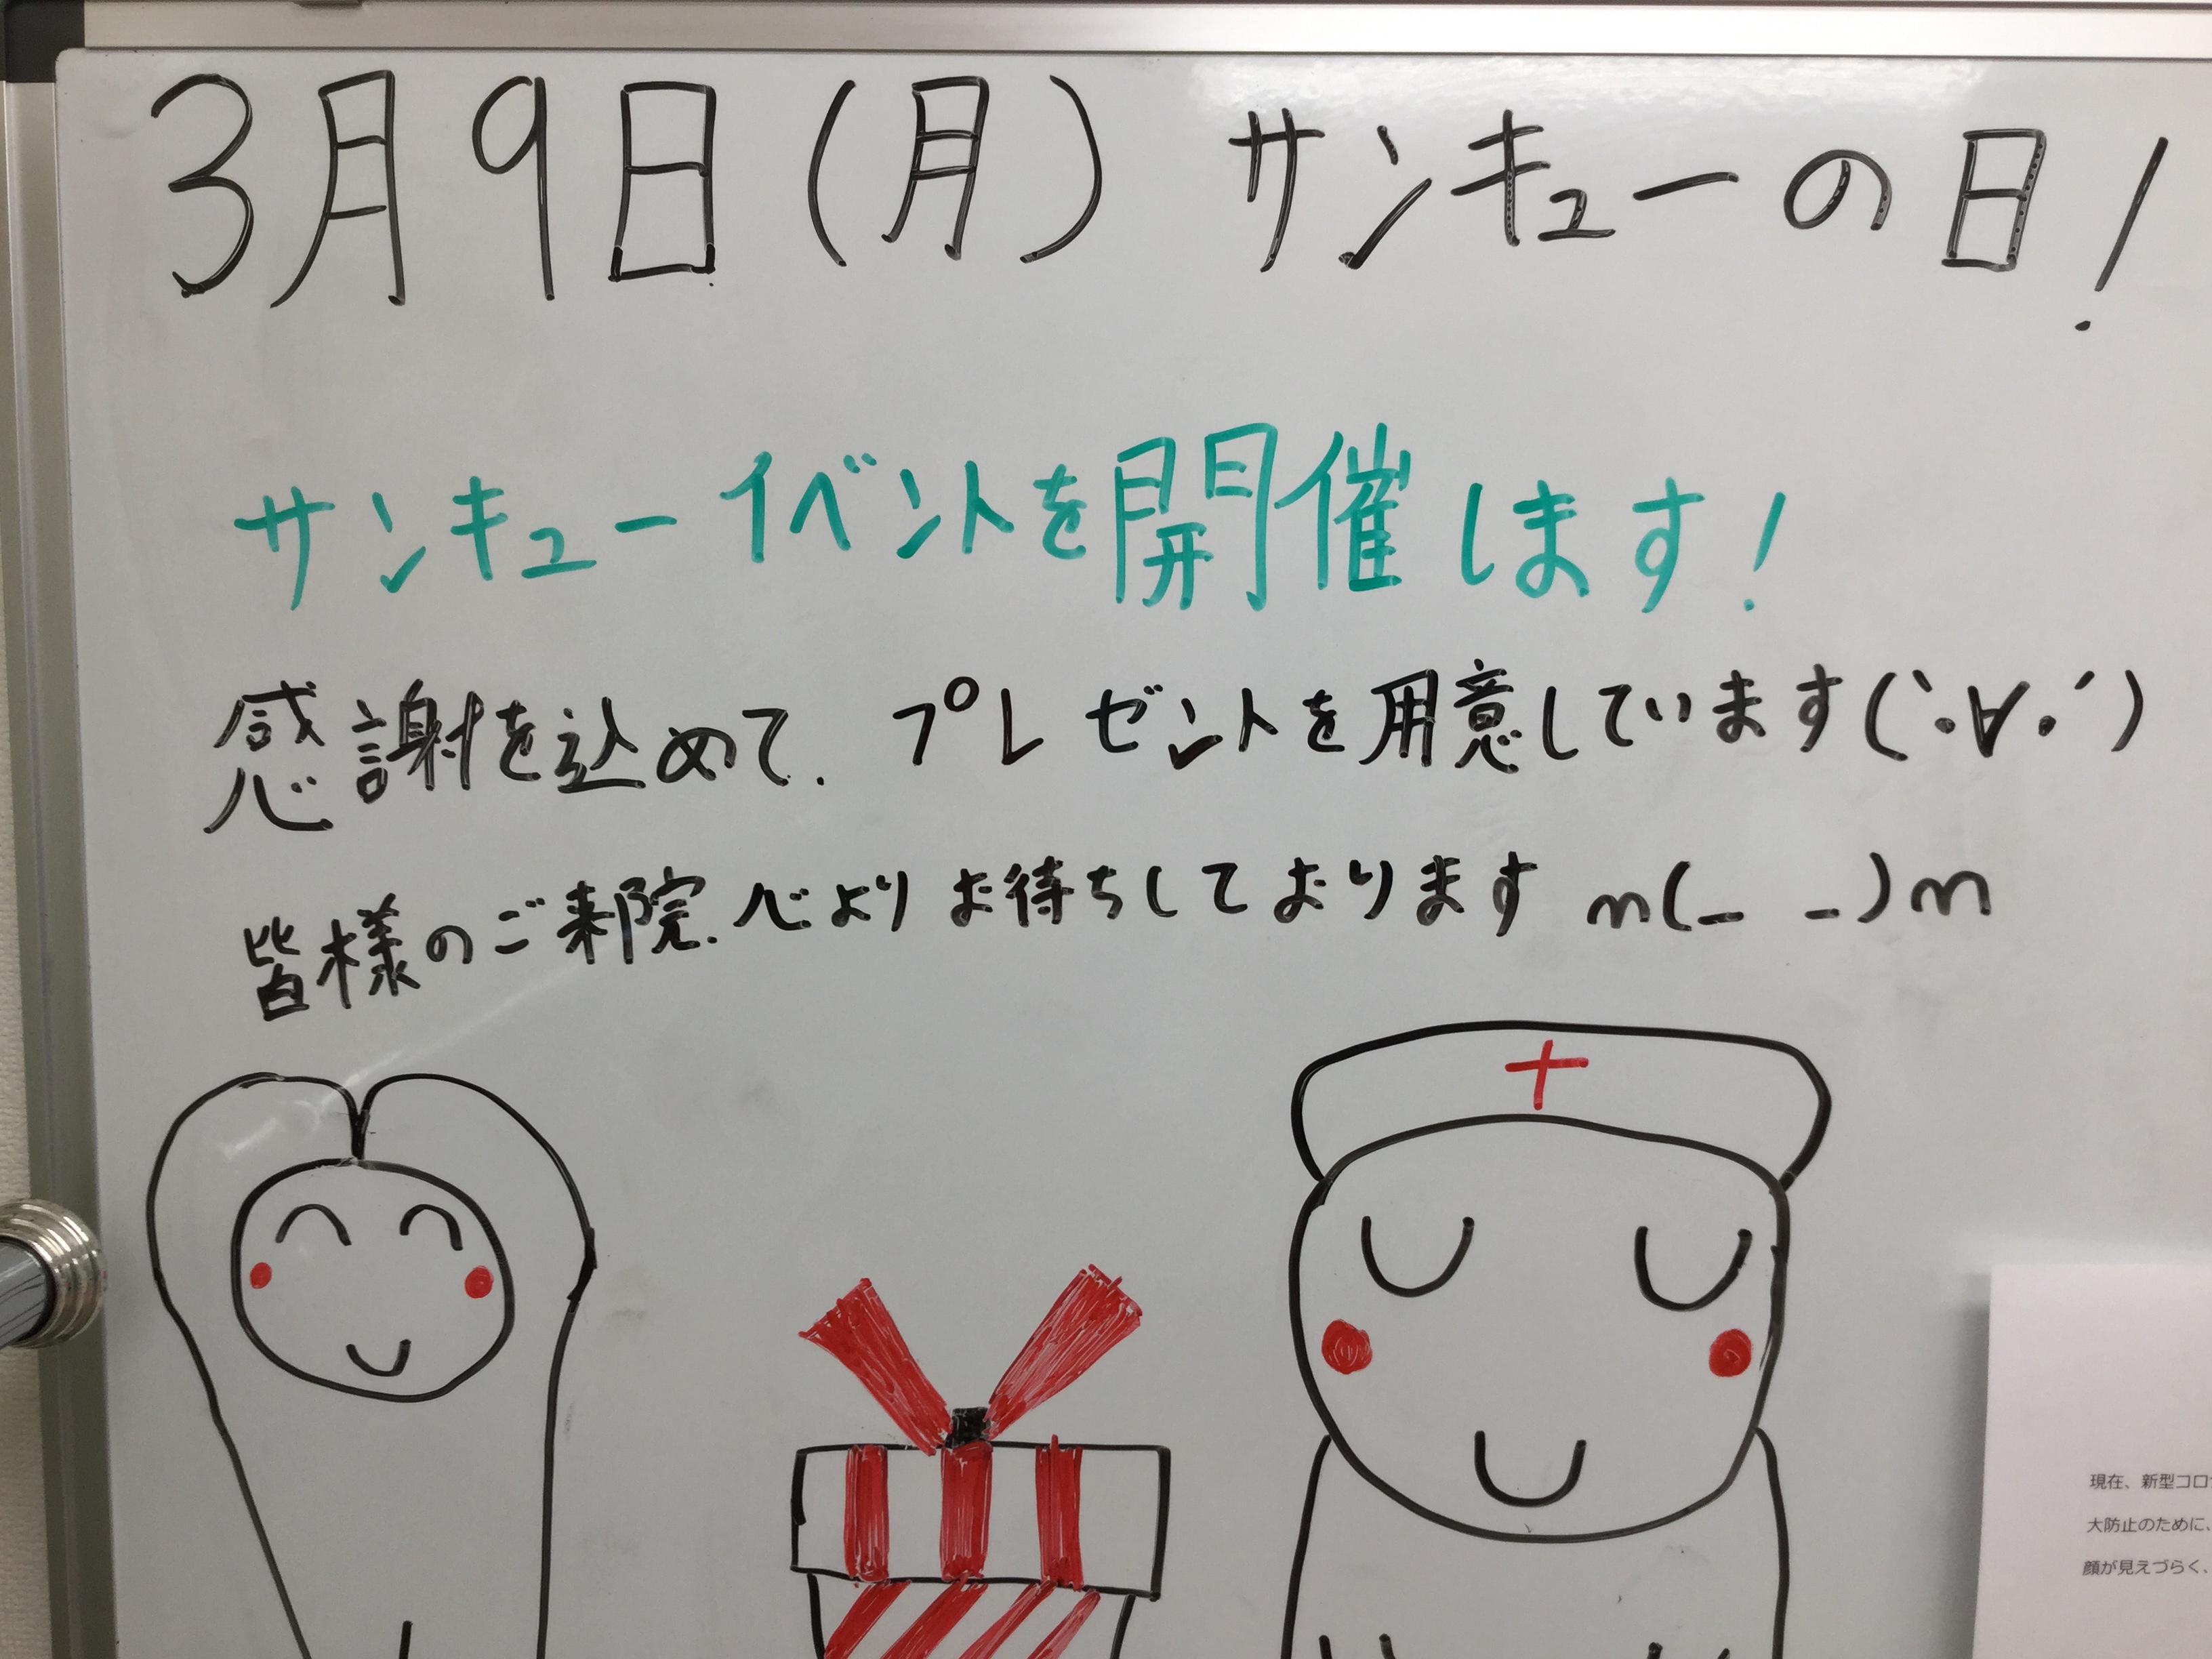 3月9日(月) サンキューの日!
サンキューイベントを開催します!
感謝を込めて、プレゼントを用意しています(`・∀・´)
皆様のご来院、心よりお待ちしております m(_ _)m
現在、新型コロ
大防止のために、
顔が見えづらく、